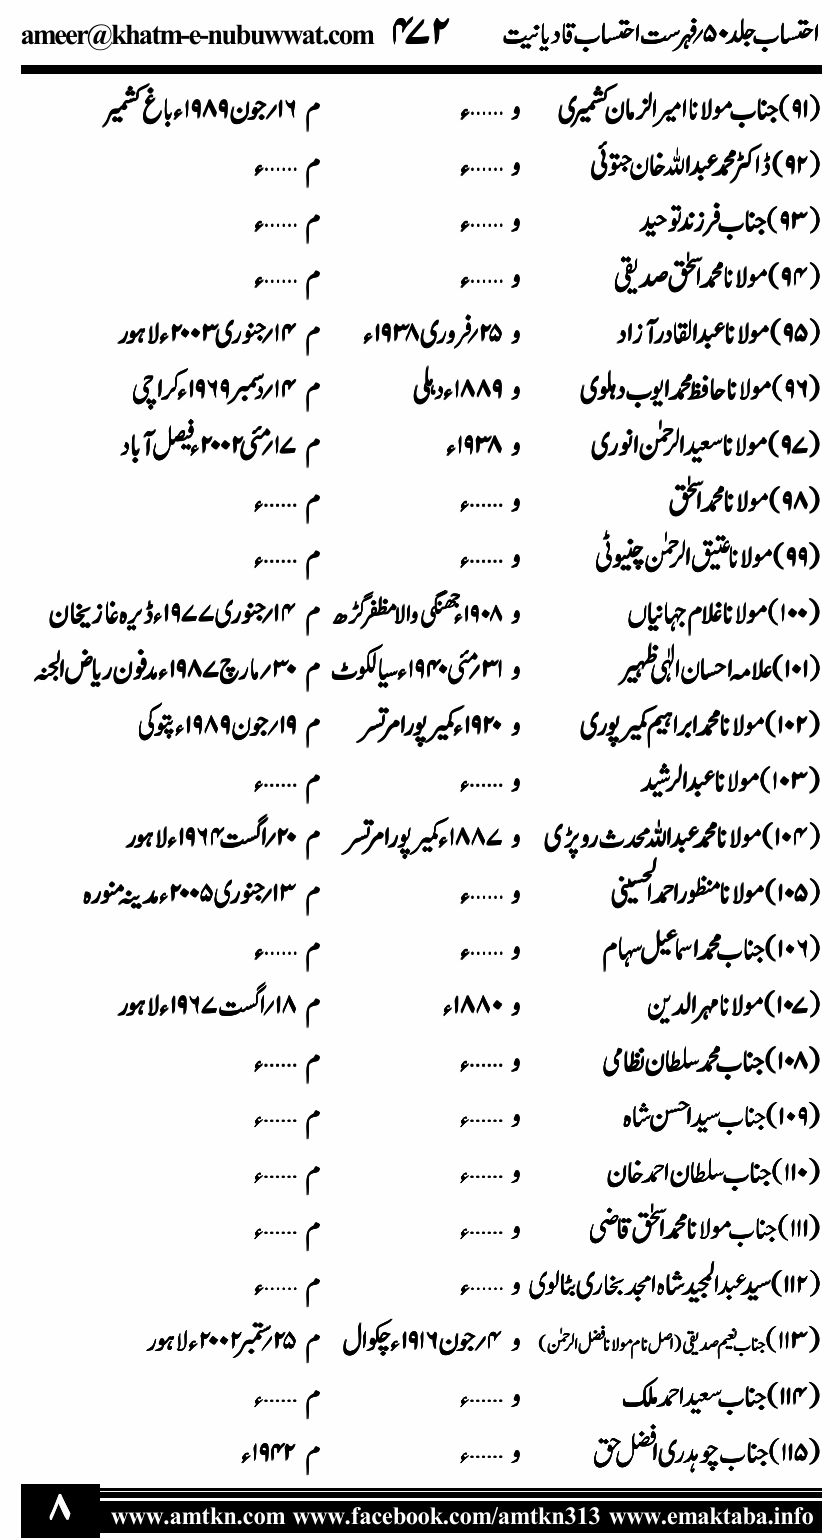 احتساب جلد ۵۰؍فہرست احتساب قادیانیت ۴۷۲ ameer@khatm-e-nubuwwat.com
(۹۱) جناب مولانا امیر الزمان کشمیری و ......ء م ۱۶؍جون ۱۹۸۹ء باغ کشمیر
(۹۲) ڈاکٹر محمد عبداللہ خان جتوئی و ......ء م ......ء
(۹۳) جناب فرزند توحید و ......ء م ......ء
(۹۴) مولانا محمد اسحٰق صدیقی و ......ء م ......ء
(۹۵) مولانا عبدالقادر آزاد و ۲۵؍فروری ۱۹۳۸ء م ۱۴؍جنوری ۲۰۰۳ء لاہور
(۹۶) مولانا حافظ محمد ایوب دہلوی و ۱۸۸۹ء دہلی م ۱۴؍دسمبر ۱۹۶۹ء کراچی
(۹۷) مولانا سعید الرحمٰن انوری و ۱۹۳۸ء م ۱۷؍مئی ۲۰۰۲ء فیصل آباد
(۹۸) مولانا محمد اسحٰق و ......ء م ......ء
(۹۹) مولانا عتیق الرحمٰن چنیوٹی و ......ء م ......ء
(۱۰۰) مولانا غلام جہانیاں و ۱۹۰۸ء جھنگی والا مظفر گڑھ م ۱۴؍جنوری ۱۹۷۷ء ڈیرہ غازیخان
(۱۰۱) علامہ احسان الٰہی ظہیر و ۳۱؍مئی ۱۹۴۰ء سیالکوٹ م ۳۰؍مارچ ۱۹۸۷ء مدفون ریاض الجنہ
(۱۰۲) مولانا محمد ابراہیم کمیرپوری و ۱۹۲۰ء کمیرپور امرتسر م ۱۹؍جون ۱۹۸۹ء پتوکی
(۱۰۳) مولانا عبدالرشید و ......ء م ......ء
(۱۰۴) مولانا محمد عبداللہ محدث روپڑی و ۱۸۸۷ء کمیرپور امرتسر م ۲۰؍اگست ۱۹۶۴ء لاہور
(۱۰۵) مولانا منظور احمد الحسینی و ......ء م ۱۳؍جنوری ۲۰۰۵ء مدینہ منورہ
(۱۰۶) جناب محمد اسماعیل سہام و ......ء م ......ء
(۱۰۷) مولانا مہر الدین و ۱۸۸۰ء م ۱۸؍اگست ۱۹۶۷ء لاہور
(۱۰۸) جناب محمد سلطان نظامی و ......ء م ......ء
(۱۰۹) جناب سید احسن شاہ و ......ء م ......ء
(۱۱۰) جناب سلطان احمد خان و ......ء م ......ء
(۱۱۱) جناب مولانا محمد اسحٰق قاضی و ......ء م ......ء
(۱۱۲) سید عبدالمجید شاہ امجد بخاری بٹالوی و ......ء م ......ء
(۱۱۳) جناب نعیم صدیقی (اصل نام مولانا فضل الرحمٰن) و ۴؍جون ۱۹۱۶ء چکوال م ۲۵؍ستمبر ۲۰۰۲ء لاہور
(۱۱۴) جناب سعید احمد ملک و ......ء م ......ء
(۱۱۵) جناب چوہدری افضل حق و ......ء م ۱۹۴۲ء
۸ www.amtkn.com www.facebook.com/amtkn313 www.emaktaba.info